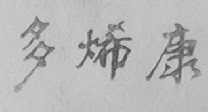 多烯康